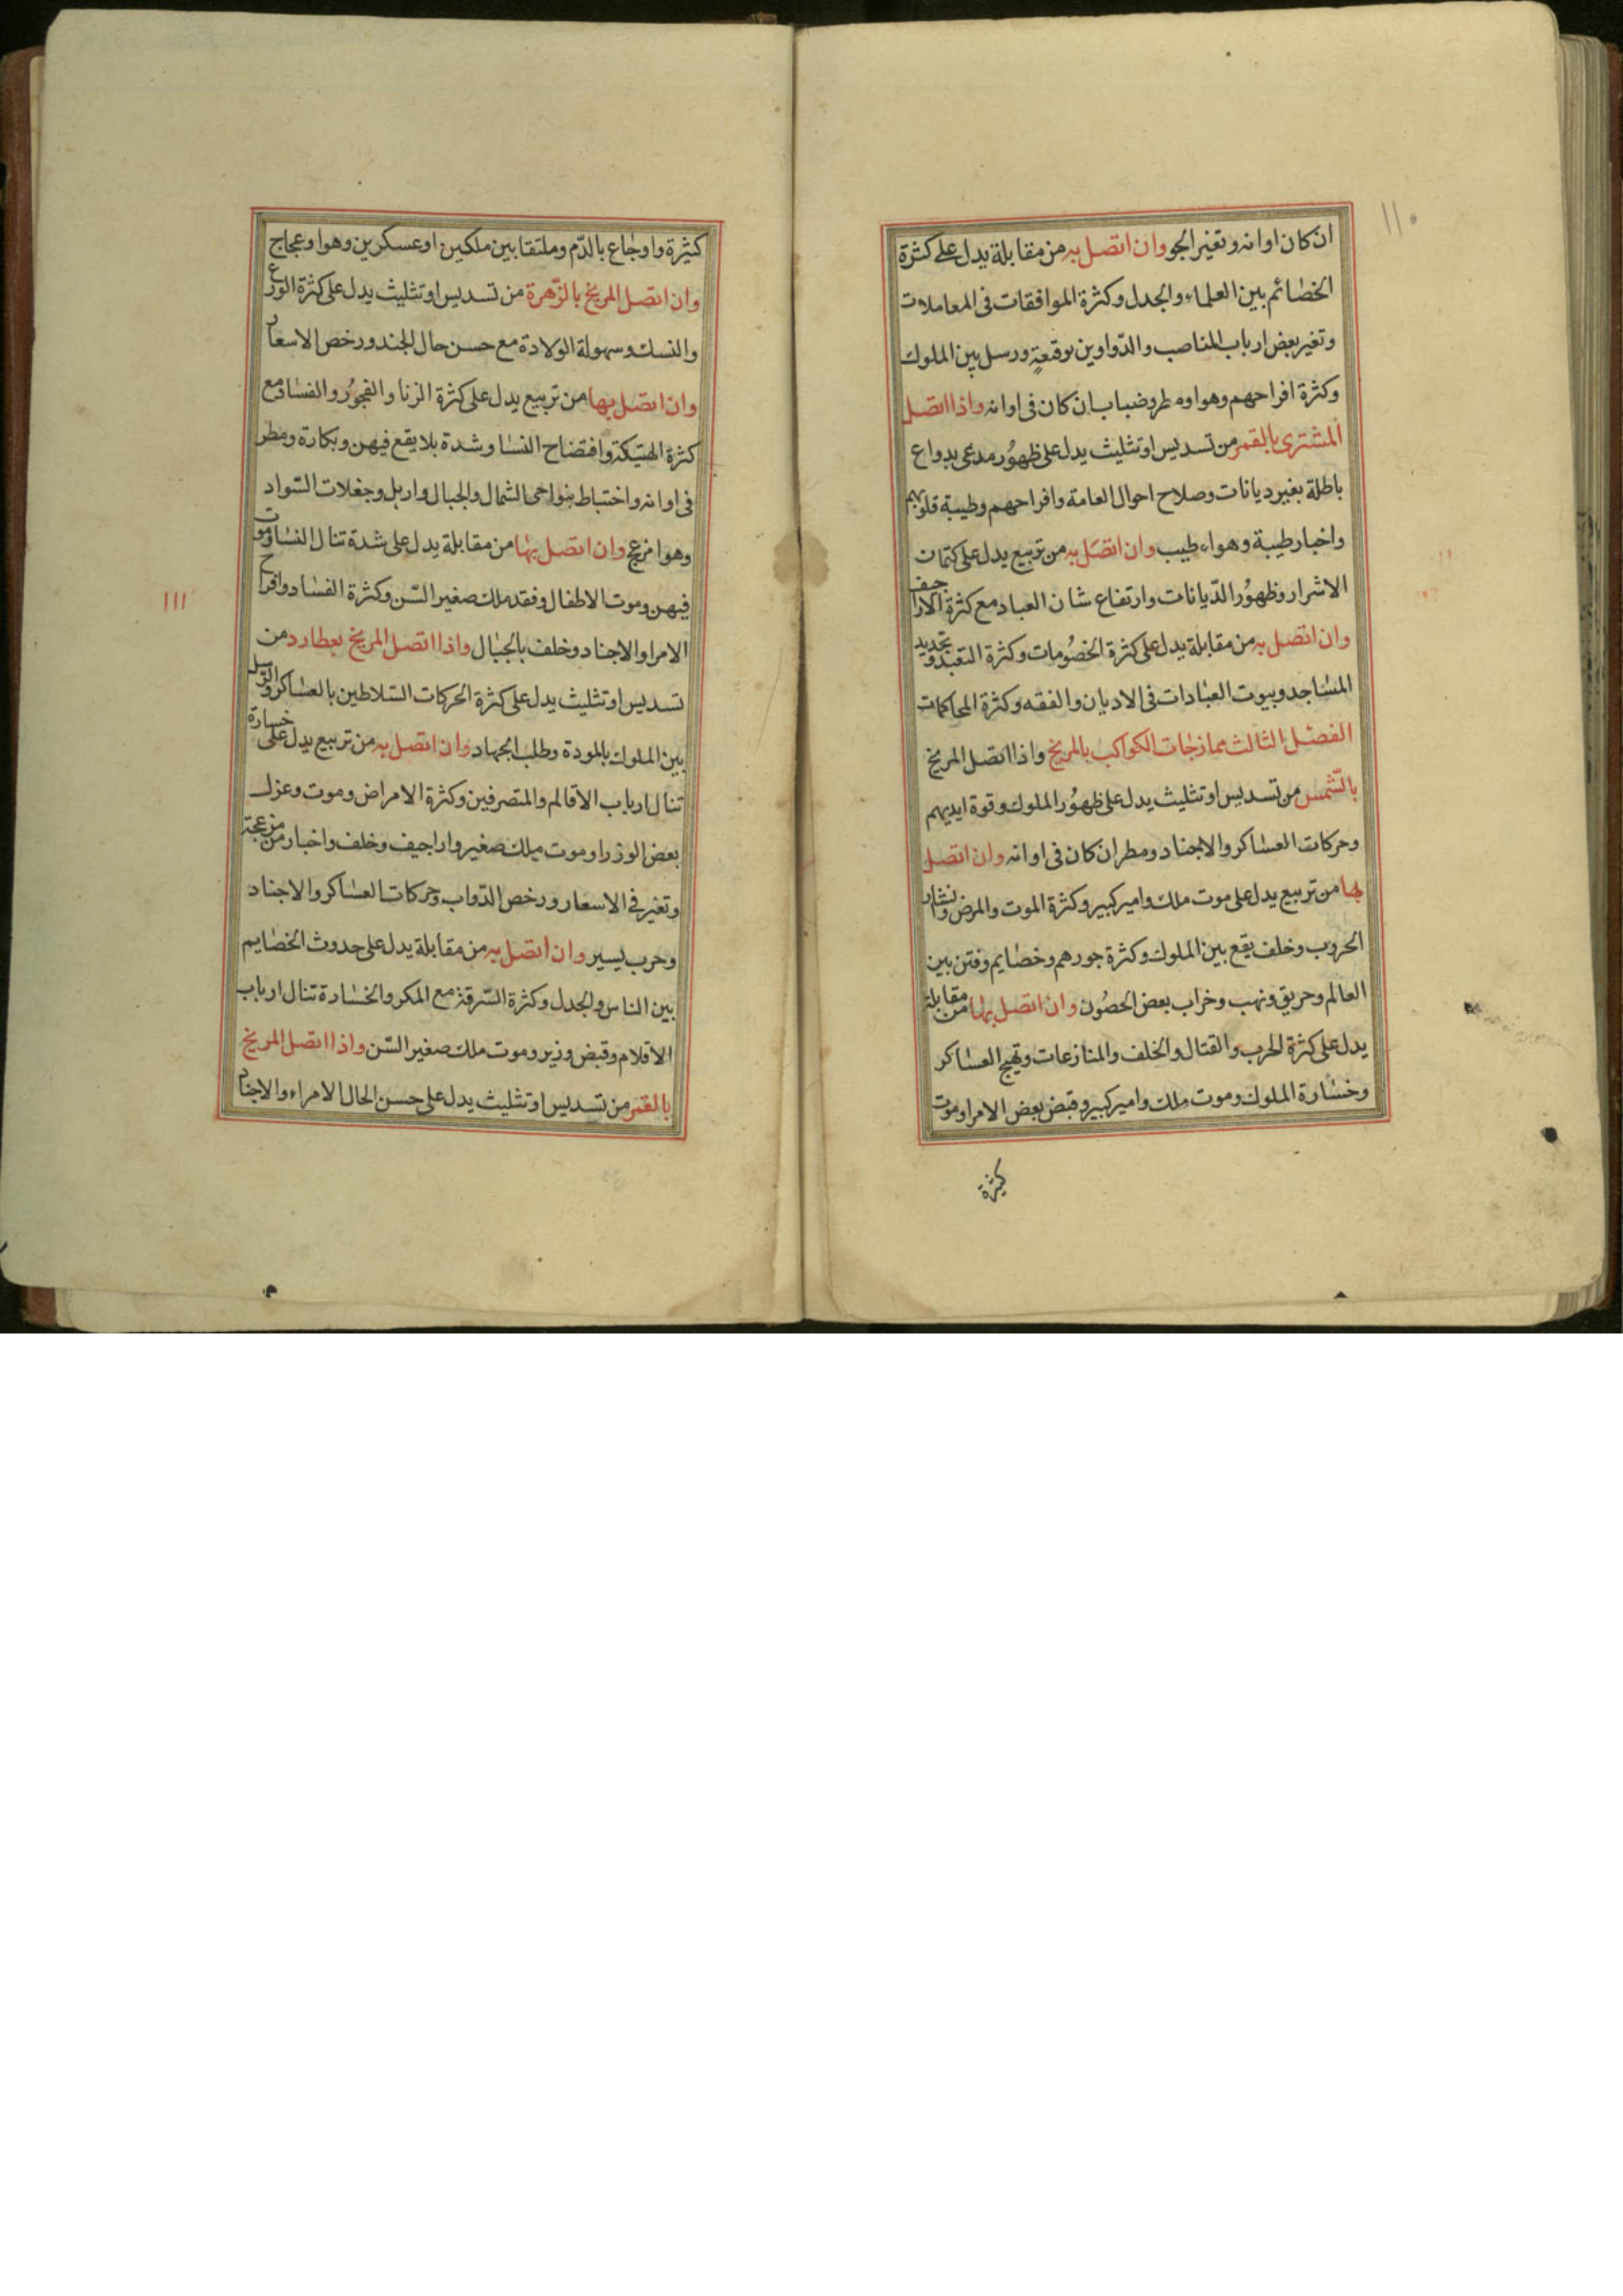 ١١٠
ان كان اوانه وتغير الجو وان اتصل به من مقابلة يدل على كثرة
الخصائم بين العلماء والجدل وكثرة الموافقات فى المعاملات
وتغير بعض ارباب المناصب والدواوين بوقعة ورسل بين الملوك
وكثرة افراحهم وهوا ومطر وضباب ان كان فى اوانه واذا اتصل
المشترى بالقمر من تسديس او تثليث يدل على ظهور مدعى بدواع
باطلة بغير ديانات وصلاح احوال العامة وافراحهم وطيبة قلوبهم
واخبار طيبة وهواء طيب وان اتصل به من تربيع يدل على كتمات
الاشرار وظهور الديانات وارتفاع شان العباد مع كثرة الاراجيف
وان اتصل به من مقابلة يدل على كثرة الخصومات وكثرة التعبد وتجديد
المساجد وبيوت العبادات فى الاديان والفقه وكثرة المحاكمات
الفصل الثالث ممازجات الكواكب بالمريخ واذا اتصل المريخ
بالشمس من تسديس او تثليث يدل على ظهور الملوك وقوة ايديهم
وحركات العساكر والاجناد ومطر ان كان فى اوانه وان اتصل
بها من تربيع يدل على موت ملك وامير كبير وكثرة الموت والمرض وانتشار
الحروب وخلف يقع بين الملوك وكثرة جورهم وخصايم وفتن بين
العالم وحريق ونهب وخراب بعض الحصون وان اتصل بها من مقابلة
يدل على كثرة الحرب والقتال والخلف والمنازعات وتهيج العساكر
وخسارة الملوك وموت ملك وامير كبير وقبض بعض الامرا وموت
كثيرة
١١١
كثيرة واوجاع بالدم وملتقا بين ملكين او عسكرين وهوا وعجاج
وان اتصل المريخ بالزهرة من تسديس او تثليث يدل على كثرة الورع
والنسك وسهولة الولادة مع حسن حال الجند ورخص الاسعار
وان اتصل بها من تربيع يدل على كثرة الزنا والفجور والفساد مع
كثرة الهتيكة وافتضاح النسا وشدة بلا يقع فيهن وبكارة ومطر
فى اوانه واختباط بنواحى الشمال والجبال واربل وجغلات السواد
وهوا مزعج وان اتصل بها من مقابلة يدل على شدة تنال النسا وموت
فيهن وموت الاطفال وفقد ملك صغير السن وكثرة الفساد وافراح
الامرا والاجناد وخلف بالجبال واذا اتصل المريخ بعطارد من
تسديس او تثليث يدل على كثرة الحركات السلاطين بالعساكر والرسل
بين الملوك بالمودة وطلب الجهاد وان اتصل به من تربيع يدل على خسارة
تنال ارباب الاقالم والمتصرفين وكثرة الامراض وموت وعزل
بعض الوزرا وموت ملك صغير واراجيف وخلف واخبار من مزعجة
وتغير فى الاسعار ورخص الدواب وحركات العساكر والاجناد
وحرب يسير وان اتصل به من مقابلة يدل على حدوث الخصايم
بين الناس والجدل وكثرة السرقة مع المكر والخسارة تنال ارباب
الاقلام وقبض وزير وموت ملك صغير السن واذا اتصل المريخ
بالقمر من تسديس او تثليث يدل على حسن الحال الامراء والاجناد